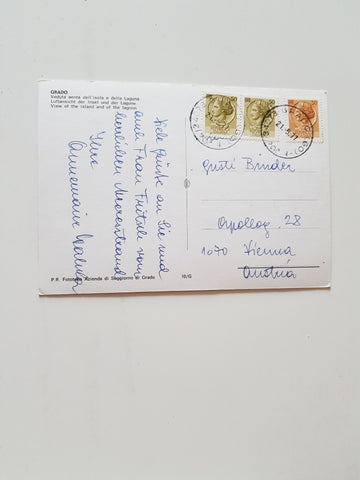 GRADO
Veduta aerea dell'isola e della Laguna
Luftansicht der Insel und der Lagune
View of the island and of the lagoon
Liebe Grüße an Sie und
auch Frau Fritzle vom
herrlichen Meeresstrand
Ihre
Annemarie
Gusti Binder
Apollog. 28
1070 Vienna
Austria
P.R. Fototeca Azienda di Soggiorno di Grado
10/G